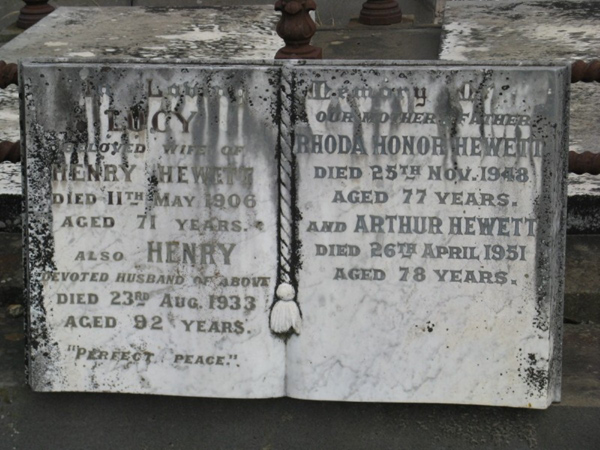 In Loving
LUCY
BELOVED WIFE OF
HENRY HEWETT
DIED 11TH MAY 1906
AGED 71 YEARS.
ALSO HENRY
DEVOTED HUSBAND OF ABOVE
DIED 23RD AUG. 1933
AGED 92 YEARS.
"PERFECT PEACE".
Memory of
OUR MOTHER & FATHER
RHODA HONOR HEWETT
DIED 25TH NOV. 1948
AGED 77 YEARS.
AND ARTHUR HEWETT
DIED 26TH APRIL 1951
AGED 78 YEARS.